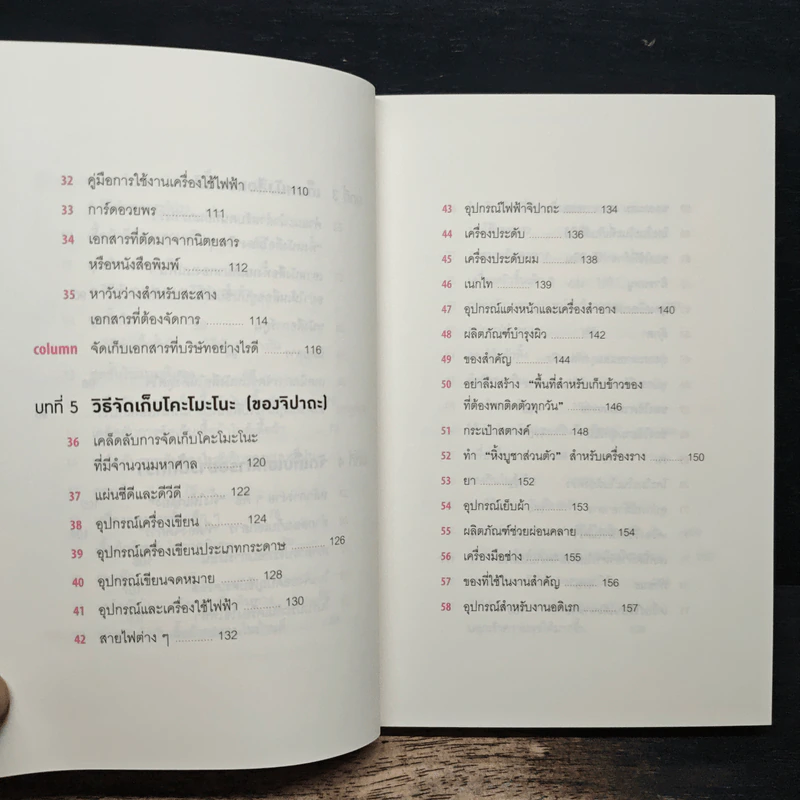 32 คู่มือการใช้งานเครื่องใช้ไฟฟ้า ........... 110
33 การ์ดอวยพร ........... 111
34 เอกสารที่ตัดมาจากนิตยสาร
หรือหนังสือพิมพ์ ........... 112
35 หาวันว่างสำหรับสะสาง
เอกสารที่ต้องจัดการ ........... 114
column จัดเก็บเอกสารที่บริษัทอย่างไรดี ........... 116
บทที่ 5 วิธีจัดเก็บโคะโมะโนะ (ของจิปาถะ)
36 เคล็ดลับการจัดเก็บโคะโมะโนะ
ที่มีจำนวนมหาศาล ........... 120
37 แผ่นซีดีและดีวีดี ........... 122
38 อุปกรณ์เครื่องเขียน ........... 124
39 อุปกรณ์เครื่องเขียนประเภทกระดาษ ........... 126
40 อุปกรณ์เขียนจดหมาย ........... 128
41 อุปกรณ์และเครื่องใช้ไฟฟ้า ........... 130
42 สายไฟต่าง ๆ ........... 132
43 อุปกรณ์ไฟฟ้าจิปาถะ ........... 134
44 เครื่องประดับ ........... 136
45 เครื่องประดับผม ........... 138
46 เนกไท ........... 139
47 อุปกรณ์แต่งหน้าและเครื่องสำอาง ........... 140
48 ผลิตภัณฑ์บำรุงผิว ........... 142
49 ของสำคัญ ........... 144
50 อย่าลืมสร้าง "พื้นที่สำหรับเก็บข้าวของ
ที่ต้องพกติดตัวทุกวัน" ........... 146
51 กระเป๋าสตางค์ ........... 148
52 ทำ "หิ้งบูชาส่วนตัว" สำหรับเครื่องราง ........... 150
53 ยา ........... 152
54 อุปกรณ์เย็บผ้า ........... 153
55 ผลิตภัณฑ์ช่วยผ่อนคลาย ........... 154
56 เครื่องมือช่าง ........... 155
57 ของที่ใช้ในงานสำคัญ ........... 156
58 อุปกรณ์สำหรับงานอดิเรก ........... 157